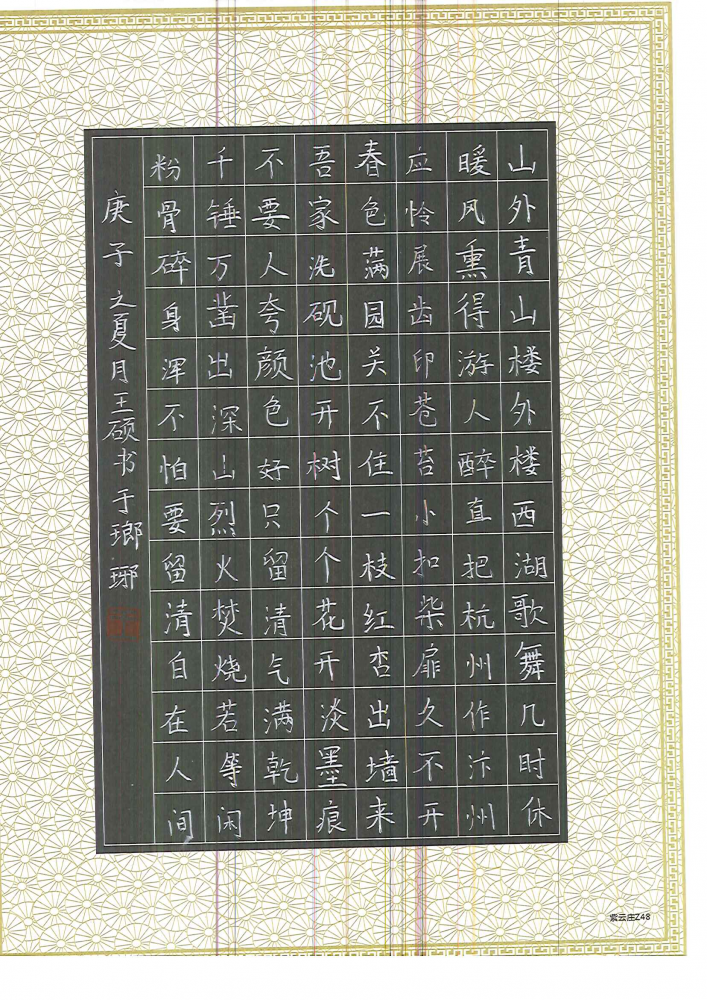 山外青山楼外楼西湖歌舞几时休
暖风熏得游人醉直把杭州作汴州
应怜屐齿印苍苔小扣柴扉久不开
春色满园关不住一枝红杏出墙来
吾家洗砚池开树个个花开淡墨痕
不要人夸颜色好只留清气满乾坤
千锤万凿出深山烈火焚烧若等闲
粉骨碎身浑不怕要留清白在人间
庚子之夏月王硕书于瑯琊
紫云庄Z48